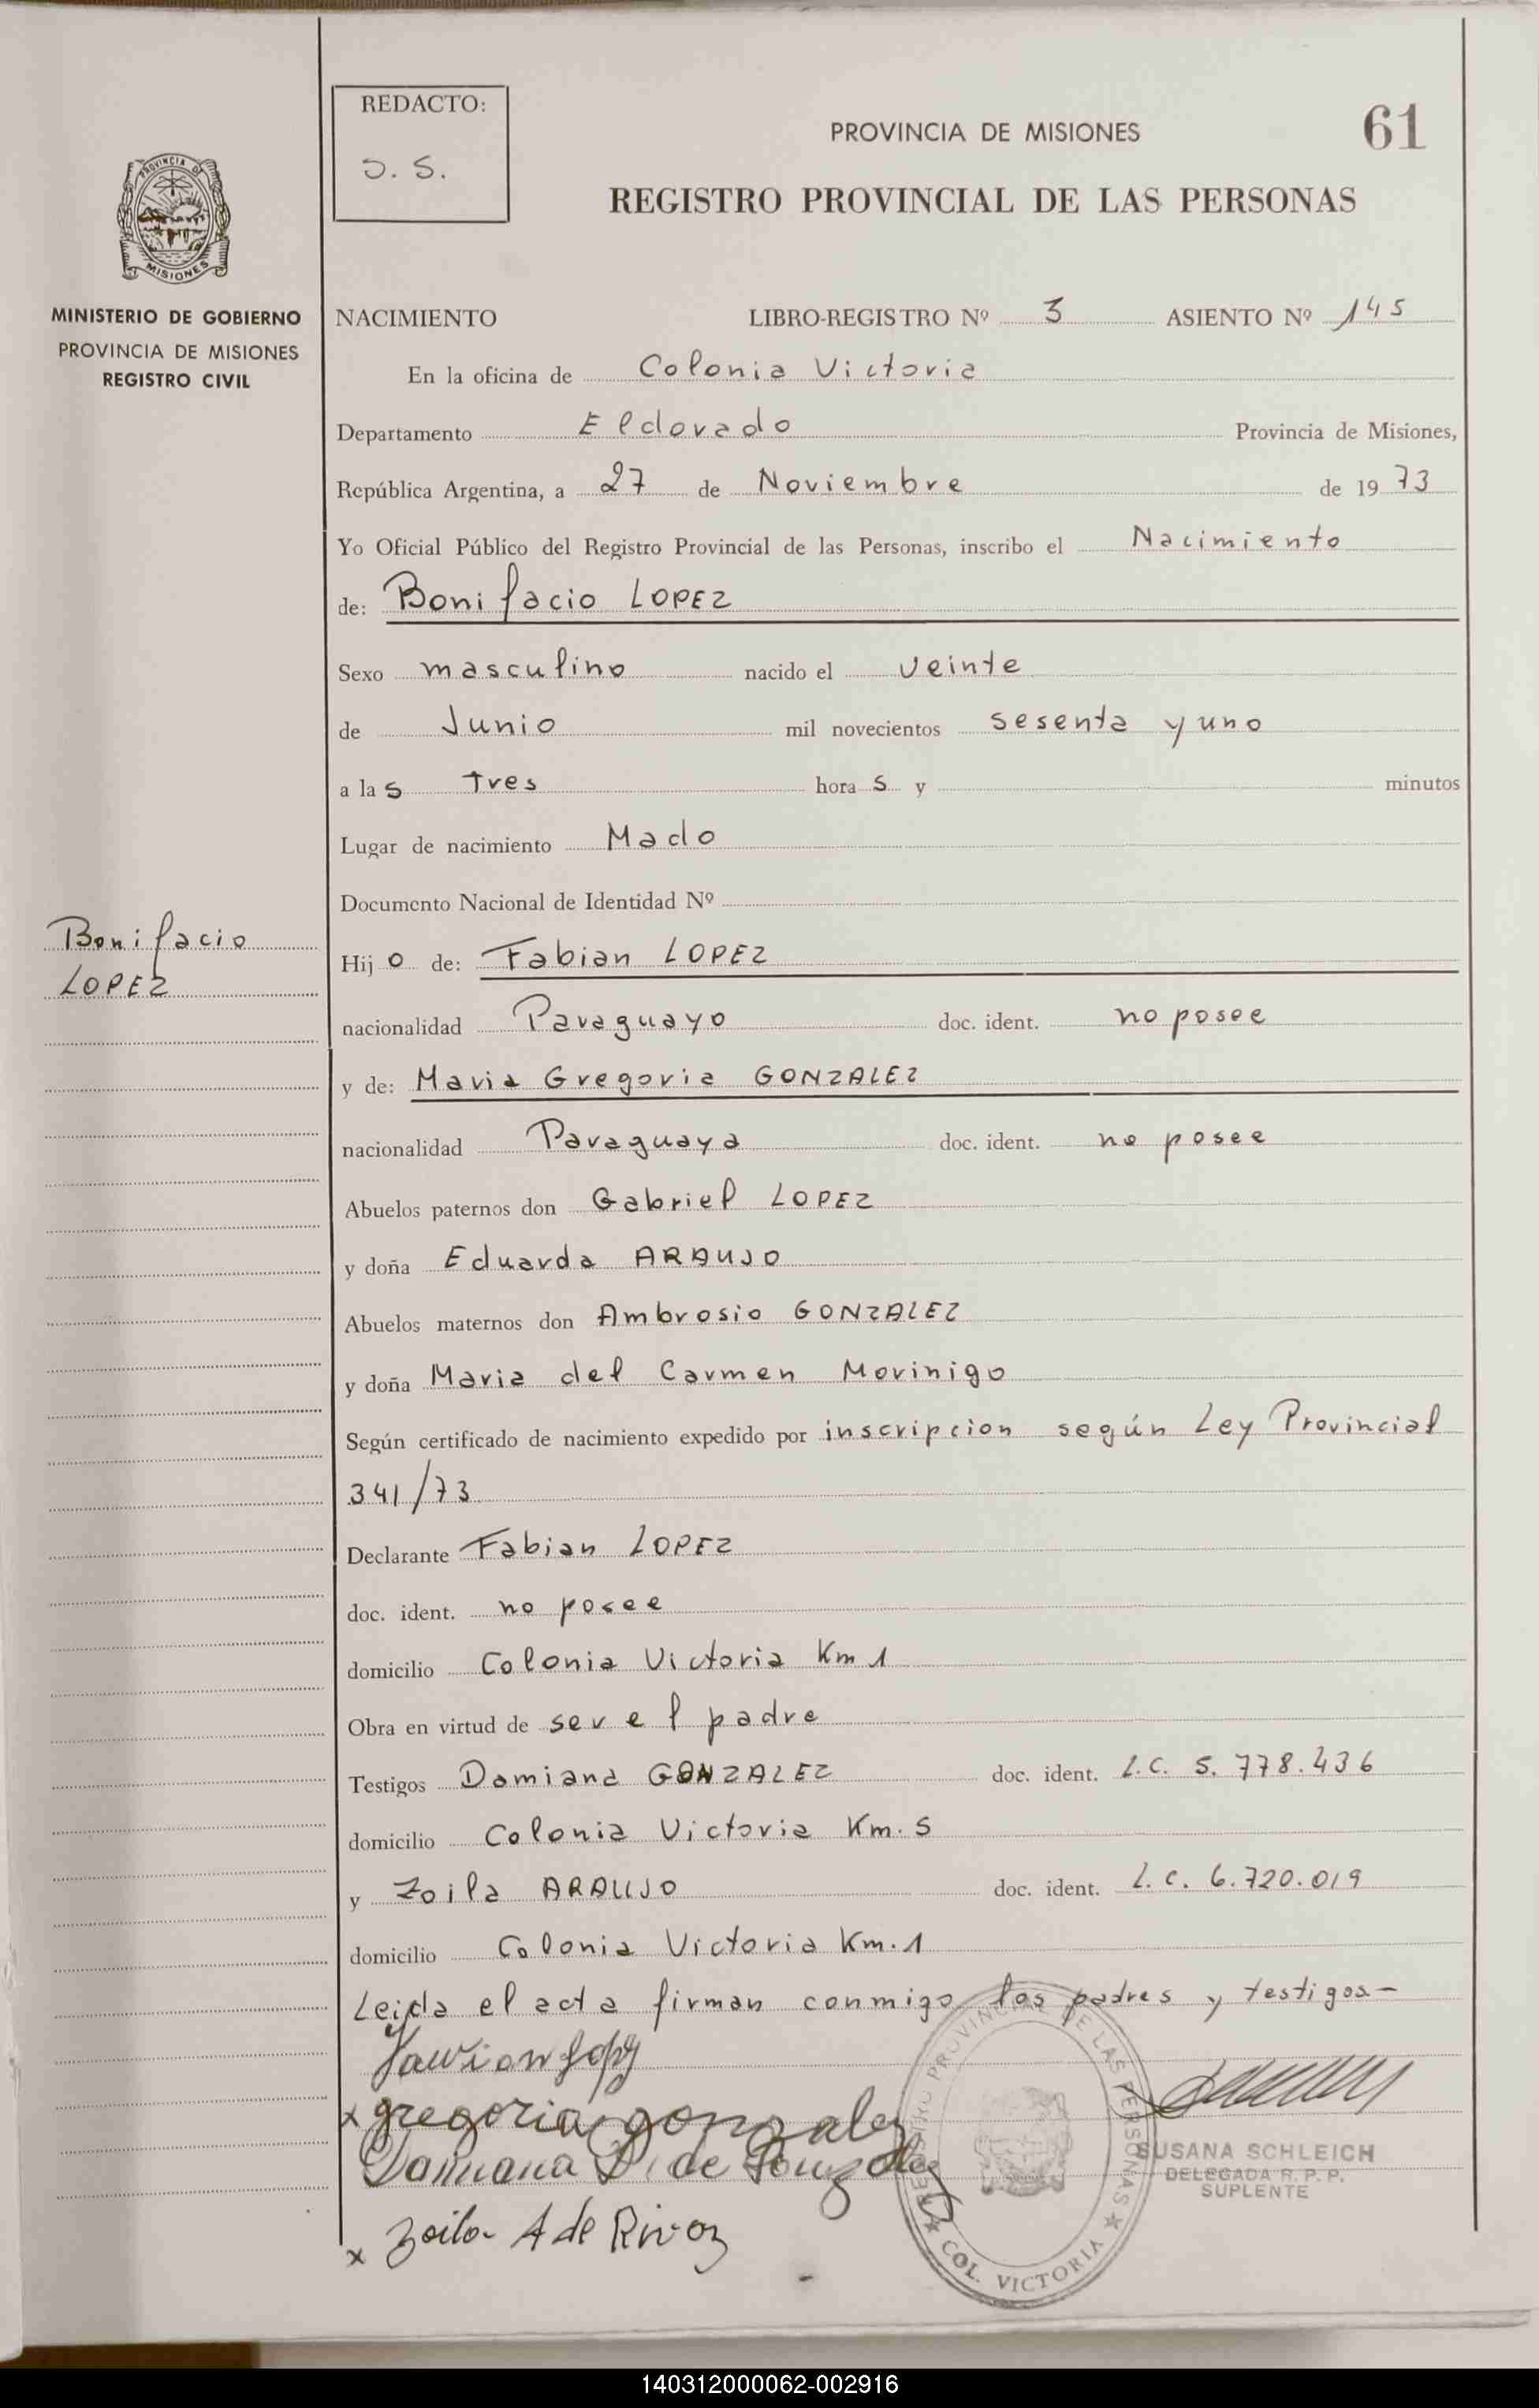 REDACTO:
J. S.
PROVINCIA DE MISIONES
61
REGISTRO PROVINCIAL DE LAS PERSONAS
PROVINCIA DE
MISIONES
MINISTERIO DE GOBIERNO
PROVINCIA DE MISIONES
REGISTRO CIVIL
NACIMIENTO LIBRO-REGISTRO Nº 3 ASIENTO Nº 145
En la oficina de Colonia Victoria
Departamento Eldorado Provincia de Misiones,
República Argentina, a 27 de Noviembre de 1973
Yo Oficial Público del Registro Provincial de las Personas, inscribo el Nacimiento
de: Bonifacio LOPEZ
Sexo masculino nacido el veinte
de Junio mil novecientos sesenta y uno
a las tres horas y minutos
Lugar de nacimiento Mado
Documento Nacional de Identidad Nº
Bonifacio
LOPEZ
Hijo de: Fabian LOPEZ
nacionalidad Paraguayo doc. ident. no posee
y de: Maria Gregoria GONZALEZ
nacionalidad Paraguaya doc. ident. no posee
Abuelos paternos don Gabriel LOPEZ
y doña Eduarda ARAUJO
Abuelos maternos don Ambrosio GONZALEZ
y doña Maria del Carmen Morinigo
Según certificado de nacimiento expedido por inscripcion según Ley Provincial
341/73
Declarante Fabian LOPEZ
doc. ident. no posee
domicilio Colonia Victoria Km 1
Obra en virtud de ser el padre
Testigos Damiana GONZALEZ doc. ident. L.C. 5.778.436
domicilio Colonia Victoria Km. 5
y Zoila ARAUJO doc. ident. L.C. 6.720.019
domicilio Colonia Victoria Km. 1
Leida el acta firman conmigo los padres y testigos-
x gregoria gonzalez
Damiana D. de Gonzalez
x Zoila A de Rivoz
REGISTRO PROVINCIAL DE LAS PERSONAS
COL. VICTORIA
SUSANA SCHLEICH
DELEGADA R. P. P.
SUPLENTE
140312000062-002916